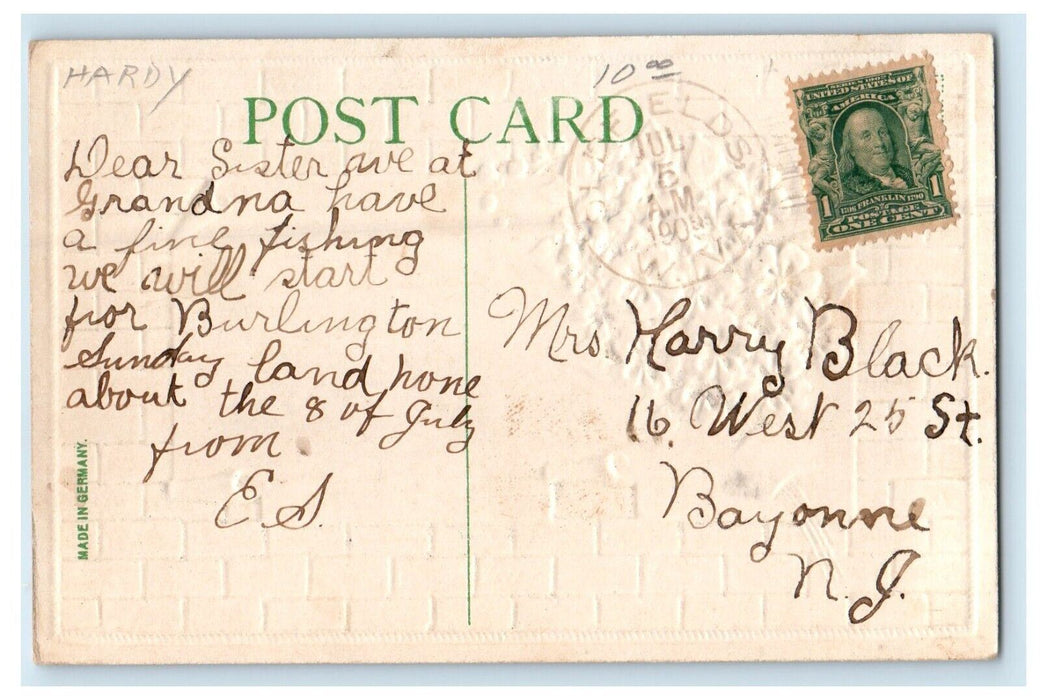 HARDY
10 00
POST CARD
SERIES 1902
UNITED STATES OF
AMERICA
1 FRANKLIN 1790 1
POSTAGE
ONE CENT
JUL
5
A.M.
190
N.Y.
Dear Sister are at
Grandna have
a fine fishing
we will start
for Burlington
Sunday land hone
about the 8 of July
from
E.S.
Mrs. Harry Black.
16. West 25 St.
Bayonne
N.J.
MADE IN GERMANY.